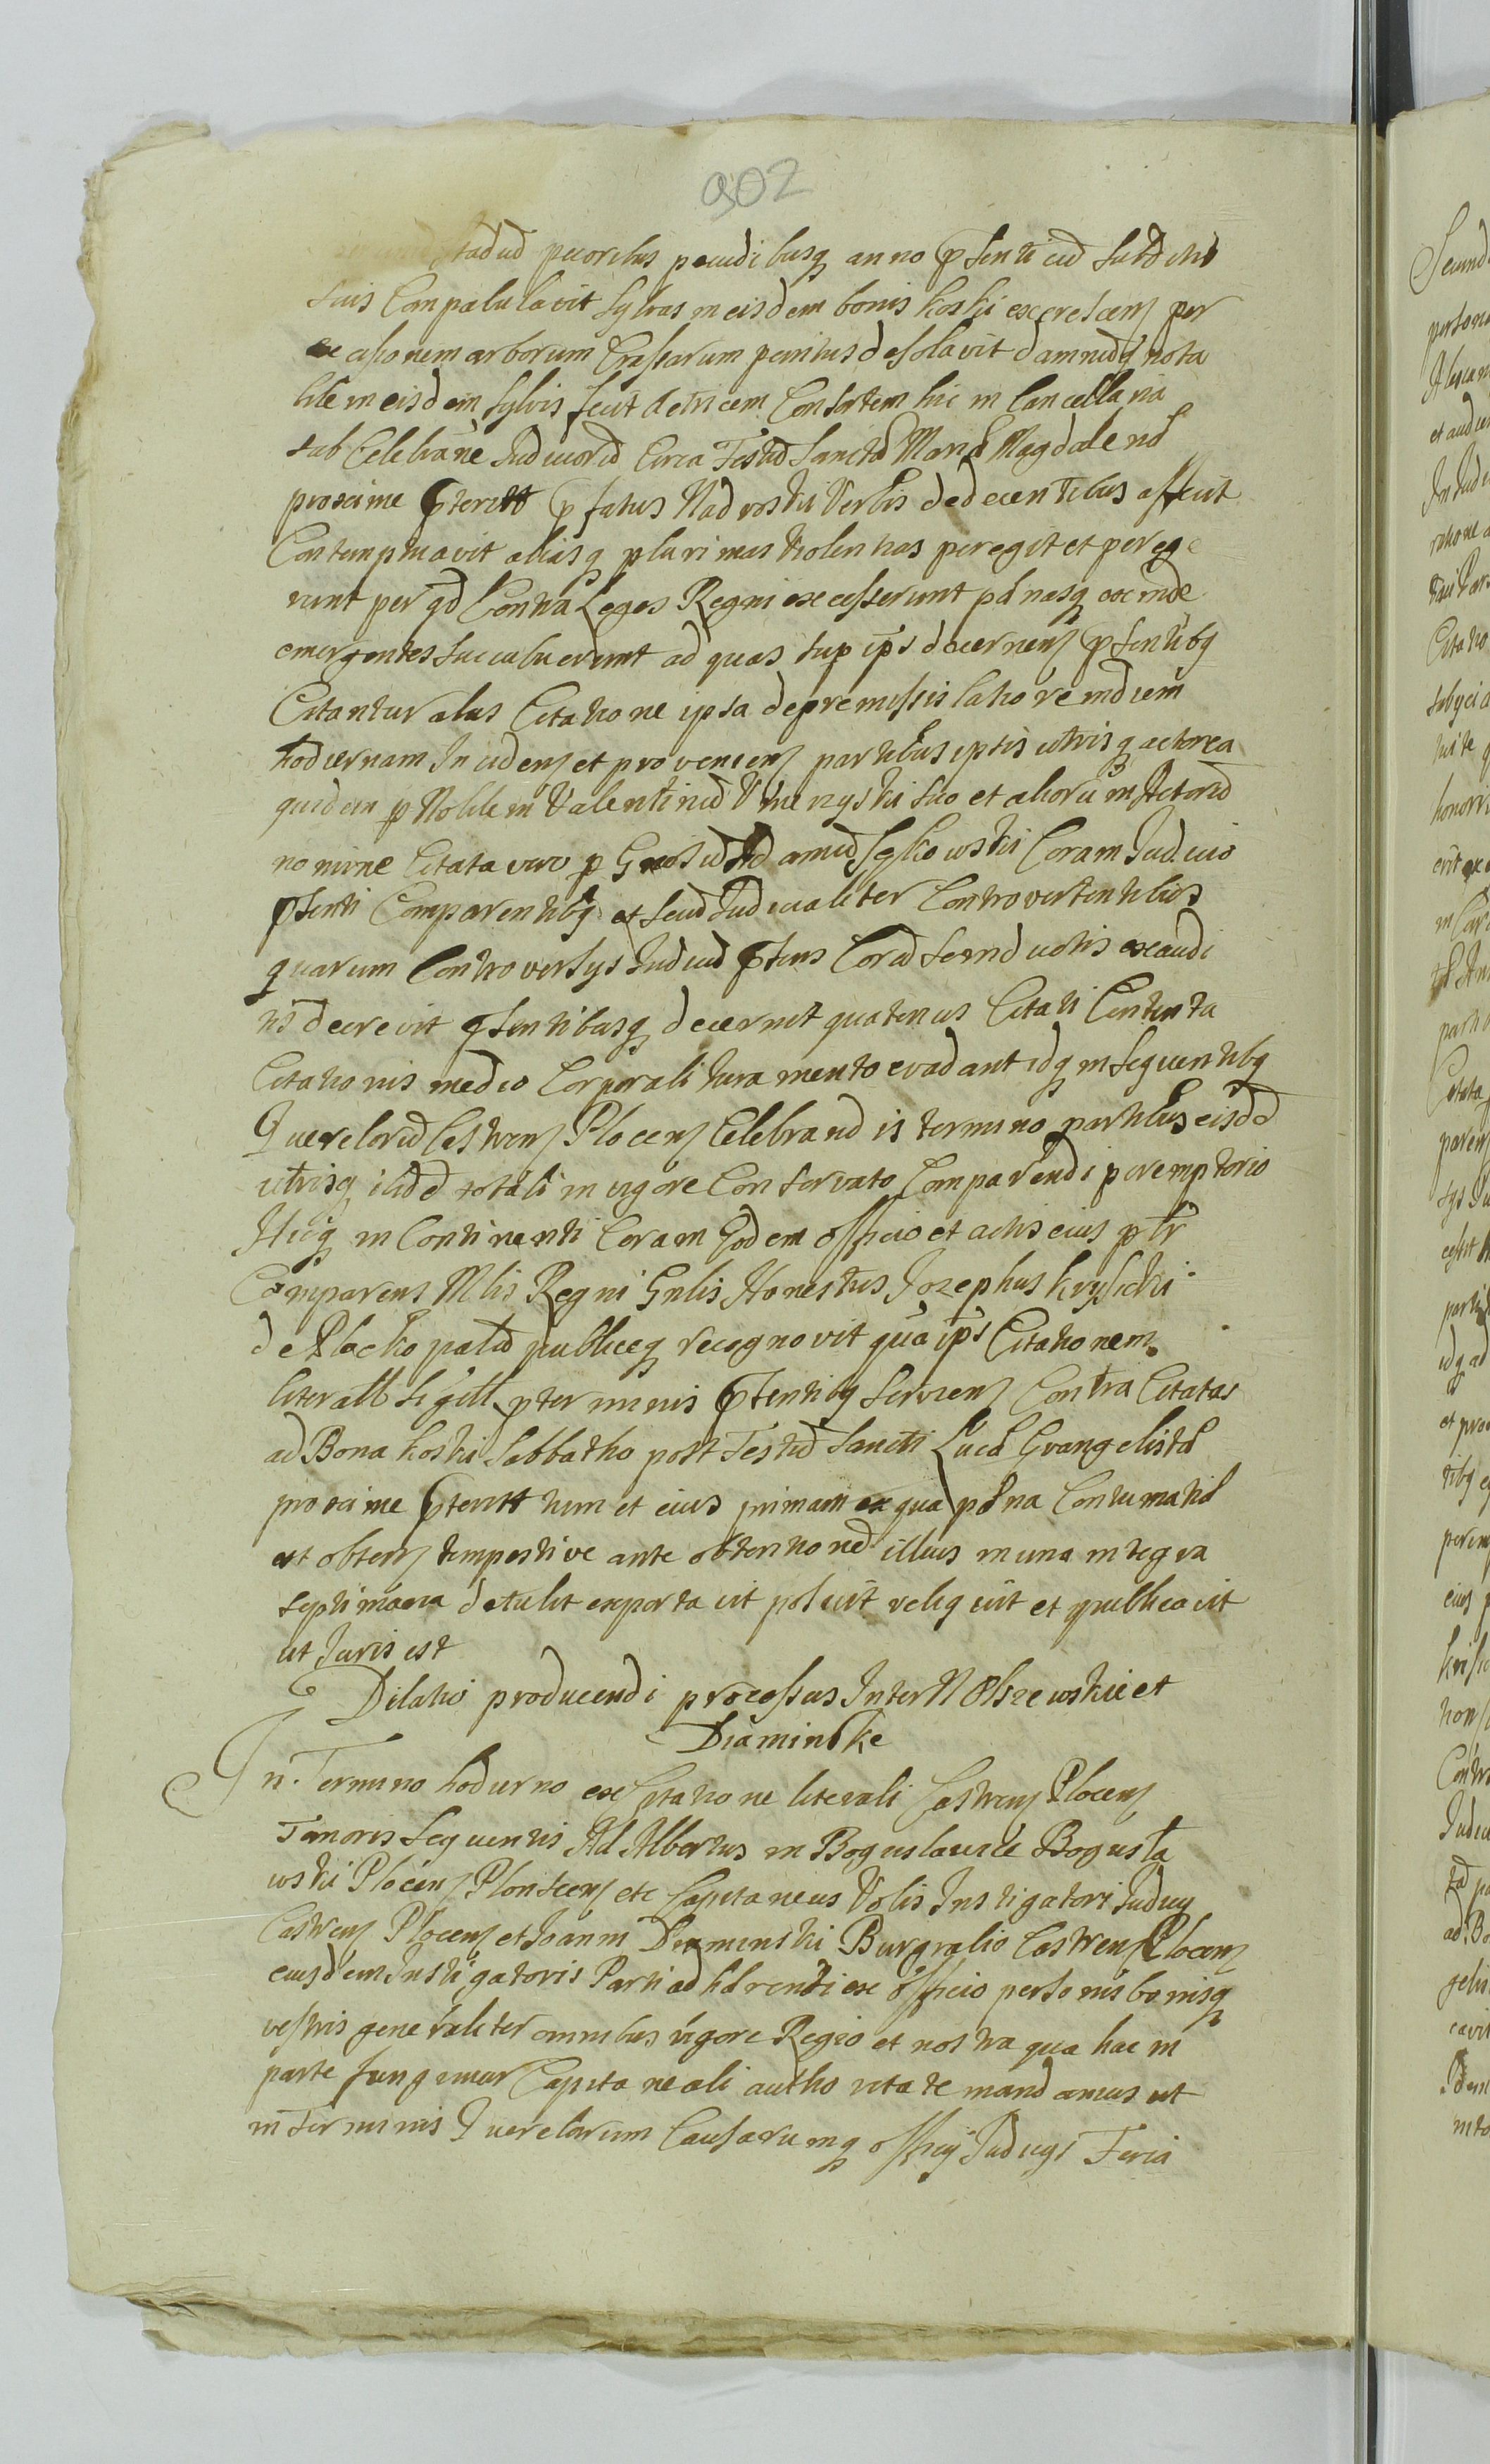 902
pecoribus pecudibusq anno pſenti cũ Subditis
suis Conpalulavit Sylvas in eisdem bonis koski excrescen per
excisionem arborum Craſsarum penitus deſolavit damnũq nota
bile in eisdem sylvis fecit Actricem Consortem hic in Cancellaria
sub Celebrãne Judiciorũ Circa Festũ Sanctæ Mariæ Magdalenæ
proxime pterit pfatus Nadroski Verbis dedecentibus affecit
Contempnavit aliasq plurimas Violentias peregit et perege
runt per qd Contra Leges Regni excesserunt pænasq exinde
emergentes succubuerunt ad quas sup ips decernen pſentibq
Citantur alias Citatione ipsa de premissis latiore in diem
hodiernam Inciden et provenien partibus ipsis utrisq actorea
quidem p Nobilem Valentinũ suo et aliorũ in Actorũ
nomine Citata vero p Gnosũ Adamũ Sczkowski Coram Judicio
pſenti Comparentibq et secũ Judicialiter Controvertentibus
quarum Controversys Judiciũ pſens Corã se inductis exaudi
tis decrevit pſentibusq decernit quatenus Citati Contenta
Citationis medio Corporali Juramento evadant idq in sequentibq
Querelarũ Castren Plocen Celebrandis termino partibus eisdẽ
utrisq ibidẽ totali in vigore Conservato Comparendi peremptorio
Hicq in Continenti Coram Eodem officio et actis eius psr
Comparens Mlis Regni Gnlis Honestus Jozephus krysicki
de Plocko palã publiceq recognovit quia ips Citationem
literall sigill pterminis pſentibq servien Contra Citatas
ad Bona koski Sabbatho post Festũ Sancti Lucæ Evangelistæ
proxime pterit tum et eius primam ex qua pæna Contumatiæ
est obten tempestive ante obtentionẽ illius in una integra
septimana detulit exportavit posuit reliquit et publicavit
ut Juris est
Dilatio producendi processus Inter N Olszewskie et
Diaminske
In Termino hodierno ex Citatione literali Castren Plocen
Tenoris Sequentis Ad Albertus in Boguslawice Bogusła
wski Plocen Plonscen etc Capitaneus Vobis Instigatori Judicy
Castren Plocen et Joanni Diaminski Burgrabio Castren Plocen
eiusdem Instigatoris Parti adhærenti ex officio personis bonisq
vestris generaliter omnibus vigore Regio et nostra qua hac in
parte fungimur Capitaneali authoritate mandamus ut
in Terminis Querelarum Causarumq officy Judicys Feria